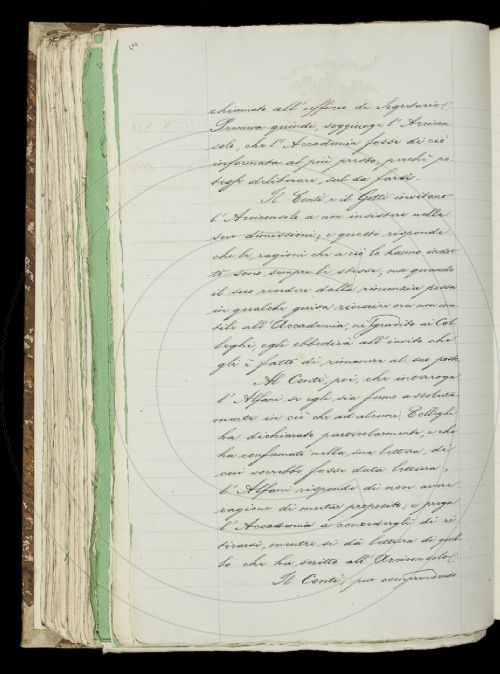 chiamato all'ufficio di Segretario.
Premeva quindi, soggiunge l'Arcicon-
solo, che l'Accademia fosse di ciò
informata al più presto, perchè po-
tesse deliberare, sul da farsi.
Il Conti, e il Gotti invitano
l'Arciconsolo a non insistere nelle
sue dimissioni; e questi risponde
che le ragioni che a ciò lo hanno indot-
to sono sempre le stesse; ma quando
il suo recedere dalla rinunzia possa
in qualche guisa riuscire ora non inu-
tile all'Accademia, nè sgradito ai Col-
leghi, egli obbedirà all'invito che
gli è fatto di rimanere al suo posto.
Al Conti, poi, che interroga
l'Alfani se egli sia fermo assoluta-
mente in ciò che ad alcuni Colleghi
ha dichiarato particolarmente, e che
ha confermato nella sua lettera, di
cui vorrebbe fosse data lettura,
l'Alfani risponde di non avere
ragione di mutar proposito; e prega
l'Accademia a concedergli di ri-
tirarsi, mentre si dà lettura di quel-
lo che ha scritto all'Arciconsolo.
Il Conti, pur comprendendo